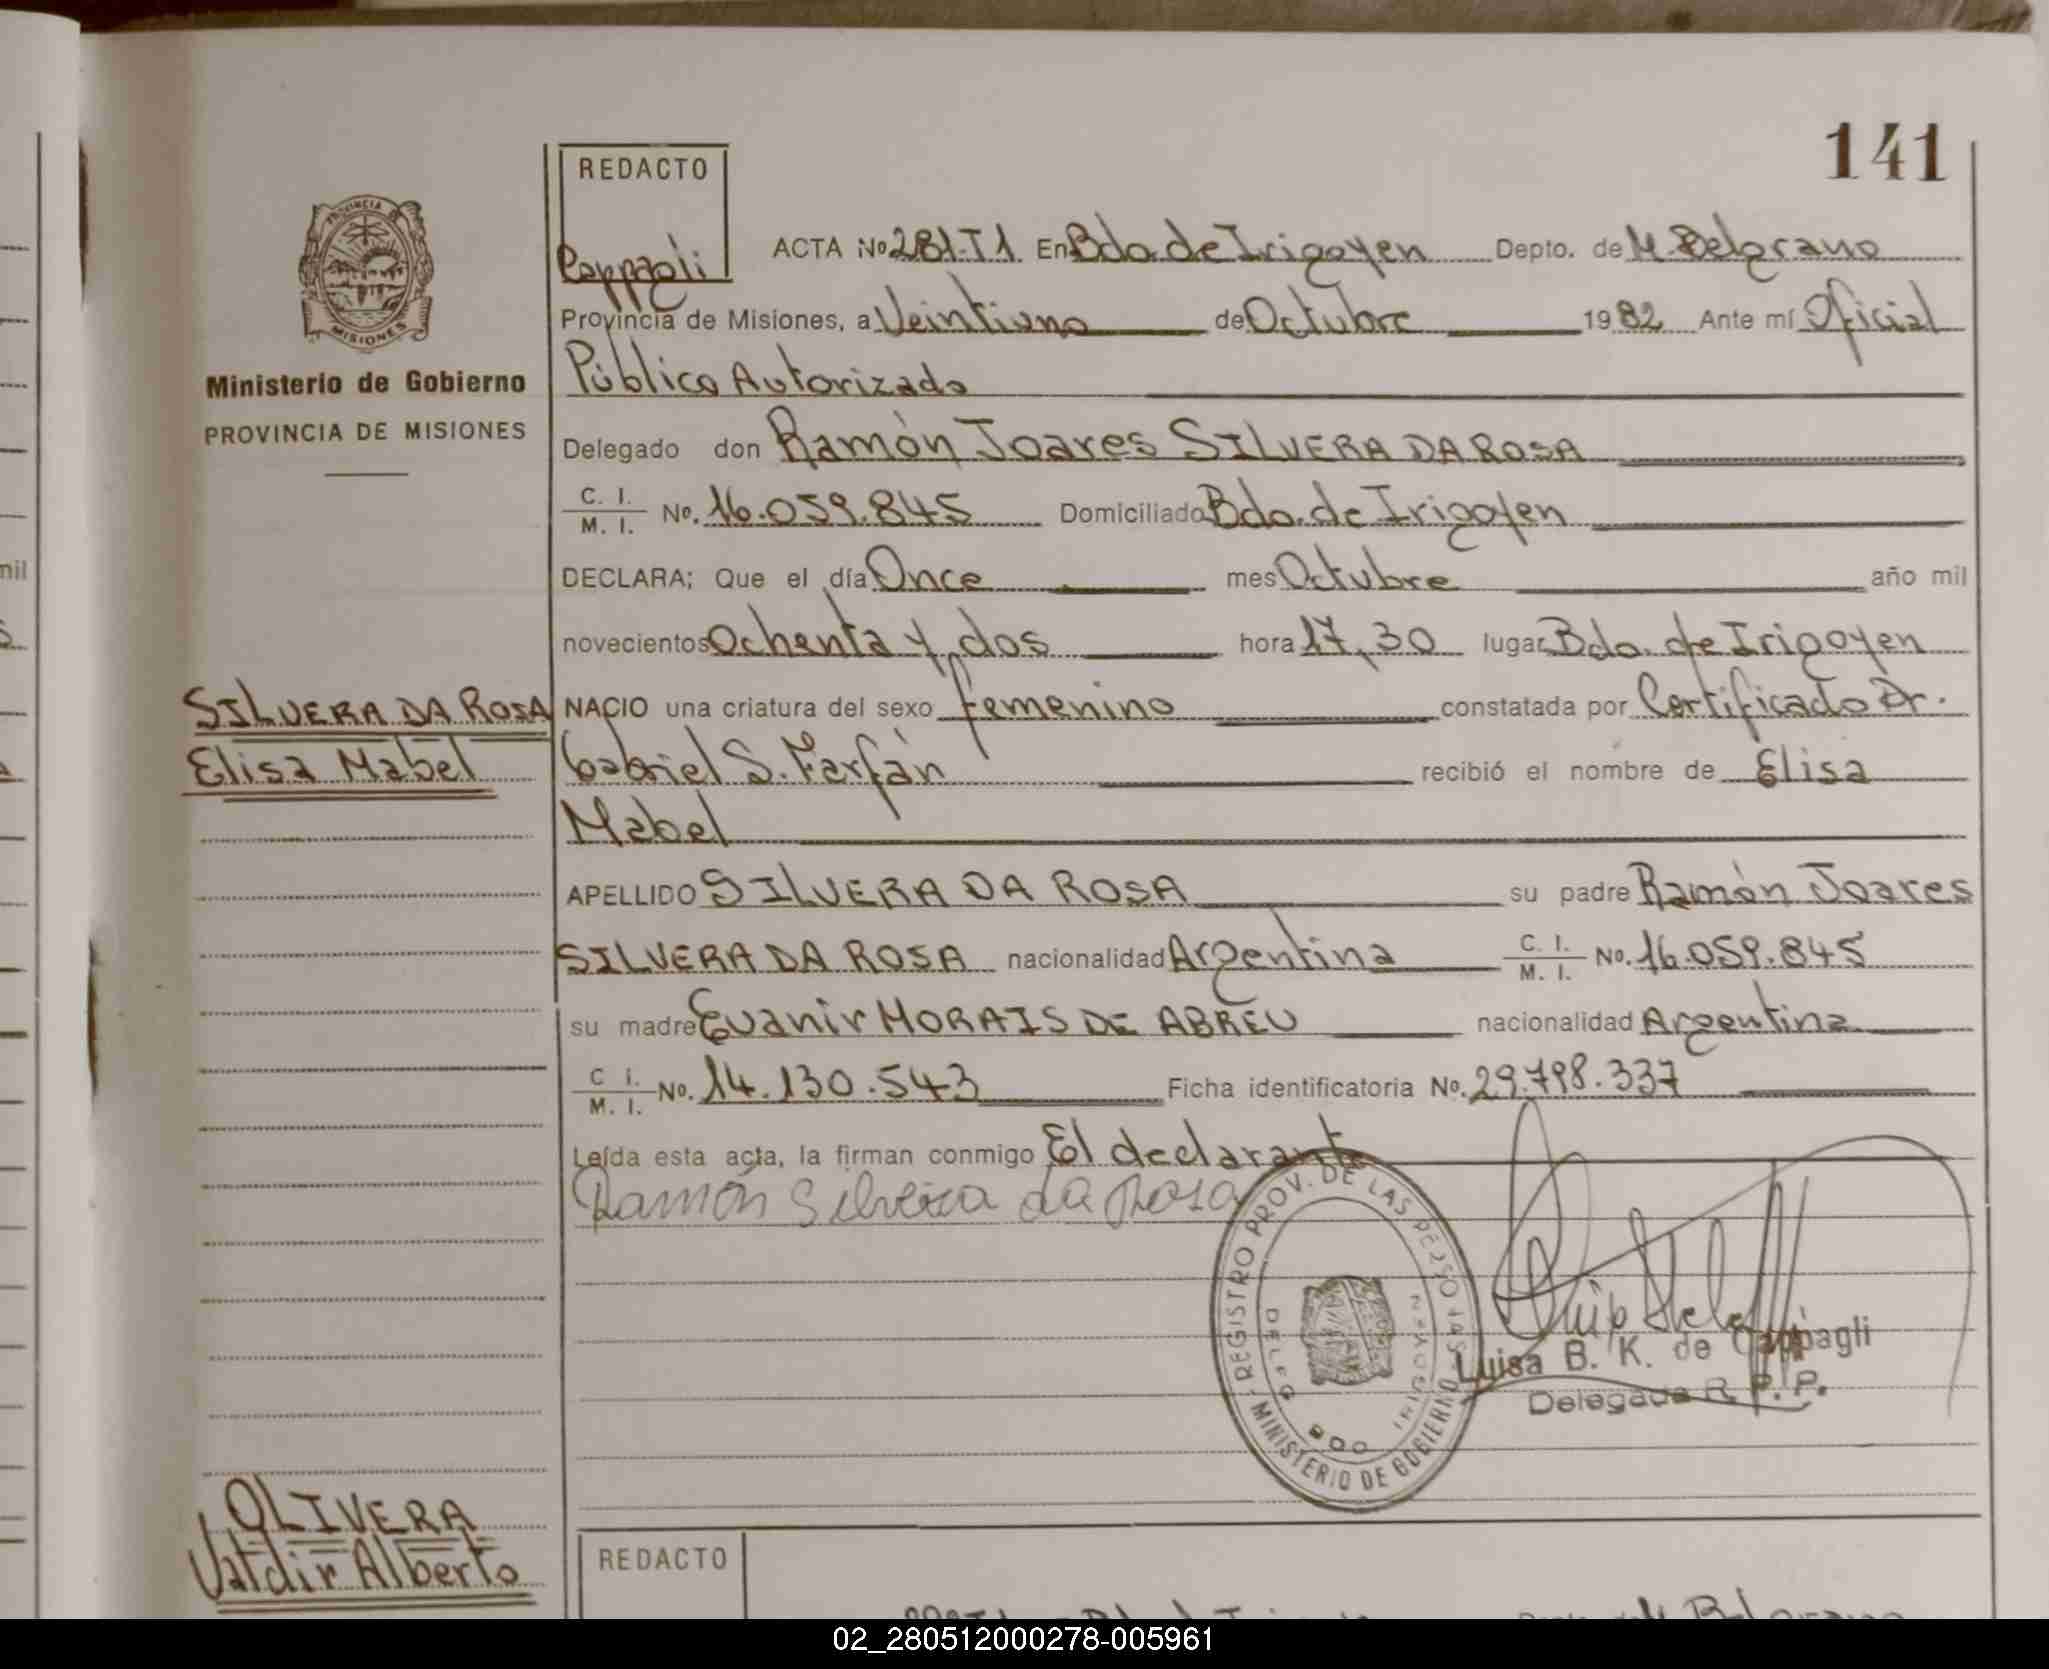 141
REDACTO
Cappagli
ACTA Nº 281-T1 En Bdo. de Irigoyen Depto. de M. Belgrano
Provincia de Misiones, a Veintiuno de Octubre 1982 Ante mí Oficial
Público Autorizado
Delegado don Ramón Joares SILVERA DA ROSA
C. I. / M. I. Nº. 16.059.845 Domiciliado Bdo. de Irigoyen
DECLARA; Que el día Once mes Octubre año mil
novecientos Ochenta y dos hora 17,30 lugar Bdo. de Irigoyen
NACIO una criatura del sexo femenino constatada por Certificado Dr.
Gabriel S. Farfán recibió el nombre de Elisa
Mabel
APELLIDO SILVERA DA ROSA su padre Ramón Joares
SILVERA DA ROSA nacionalidad Argentina C. I. / M. I. Nº. 16.059.845
su madre Evanir MORAIS DE ABREU nacionalidad Argentina
C I. / M. I. Nº. 14.130.543 Ficha identificatoria Nº. 29.798.337
Leída esta acta, la firman conmigo El declarante
Ramón Silveira da Rosa
REGISTRO PROV. DE LAS PERSONAS
MINISTERIO DE GOBIERNO
DELEG. BDO IRIGOYEN
Luisa B. K. de Cappagli
Delegada R. P. P.
PROVINCIA DE
MISIONES
Ministerio de Gobierno
PROVINCIA DE MISIONES
SILVERA DA ROSA
Elisa Mabel
OLIVERA
Valdir Alberto
REDACTO
mil
02_280512000278-005961